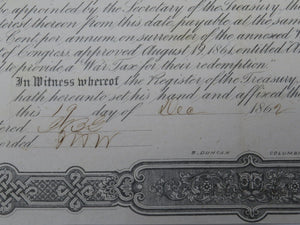 appointed by the Secretary of the Treasury, th
terest thereon from this date payable at the sam
Cent, per annum, on surrender of the annexed W
of Congress approved August 19, 1861, entitled A
to provide a "War Tax for their redemption."
In Witness whereof the Register of the Treasury
hath hereunto set his hand and affixed th
this day of Dec 1862
tered
corded
B. DUNCAN COLUMB